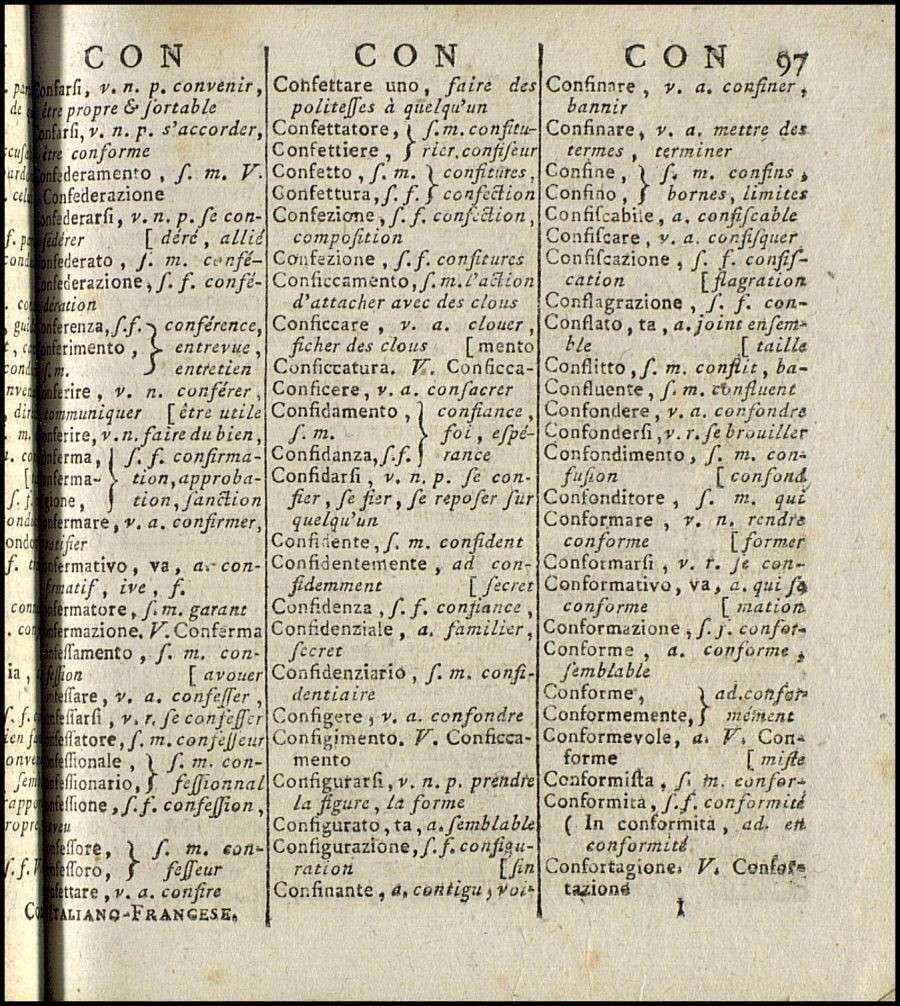 CON
Confarſi, v. n. p. convenir,
être propre & ſortable
Confarſi, v. n. p. s'accorder,
être conforme
Confederamento, ſ. m. V.
Confederazione
Confederarſi, v. n. p. ſe con-
fédérer [ déré, allié
Confederato, ſ. m. confé-
Confederazione, ſ. f. confé-
dération
Conferenza, ſ.f. } conférence,
Conferimento, } entrevue,
ſ.m. } entretien
Conferire, v. n. conférer,
communiquer [ être utile
Conferire, v.n. faire du bien,
Conferma, } ſ. f. confirma-
Conferma- } tion, approba-
gione, } tion, ſanction
Confermare, v. a. confirmer,
ratifier
Confermativo, va, a. con-
firmatif, ive, f.
Confermatore, ſ. m. garant
Confermazione. V. Conferma
Confeſſamento, ſ. m. con-
feſſion [ avouer
Confeſſare, v. a. confeſſer,
Confeſſarſi, v. r. ſe confeſſer
Confeſſatore, ſ. m. confeſſeur
Confeſſionale, } ſ. m. con-
Confeſſionario, } feſſionnal
Confeſſione, ſ. f. confeſſion,
aveu
Confeſſore, } ſ. m. con-
Confeſſoro, } feſſeur
Confettare, v. a. confire
ITALIANO-FRANCESE.
CON
Confettare uno, faire des
politeſſes à quelqu'un
Confettatore, } ſ. m. confitu-
Confettiere, } rier, confiſeur
Confetto, ſ. m. } confitures,
Confettura, ſ. f. } confection
Confezione, ſ. f. confection,
compoſition
Confezione, ſ. f. confitures
Conficcamento, ſ. m. l'action
d'attacher avec des clous
Conficcare, v. a. clouer,
ficher des clous [mento
Conficcatura. V. Conficca-
Conficere, v. a. conſacrer
Confidamento, } confiance,
ſ. m. } foi, eſpé-
Confidanza, ſ.f. } rance
Confidarſi, v. n. p. ſe con-
fier, ſe fier, ſe repoſer ſur
quelqu'un
Confidente, ſ. m. confident
Confidentemente, ad con-
fidemment [ ſecret
Confidenza, ſ. f. confiance,
Confidenziale, a. familier,
ſecret
Confidenziario, ſ. m. confi-
dentiaire
Configere, v. a. confondre
Configimento. V. Conficca-
mento
Configurarſi, v. n. p. prendre
la figure, la forme
Configurato, ta, a. ſemblable
Configurazione, ſ. f. configu-
ration [ſin
Confinante, a. contigu, voi-
CON 97
Confinare, v. a. confiner,
bannir
Confinare, v. a. mettre des
termes, terminer
Confine, } ſ. m. confins,
Confino, } bornes, limites
Confiſcabile, a. confiſcable
Confiſcare, v. a. confiſquer
Confiſcazione, ſ. f. confiſ-
cation [flagration
Conflagrazione, ſ. f. con-
Conflato, ta, a. joint enſem-
ble [ taille
Conflitto, ſ. m. conflit, ba-
Confluente, ſ. m. confluent
Confondere, v. a. confondre
Confonderſi, v. r. ſe brouiller
Confondimento, ſ. m. con-
fuſion [ confond
Confonditore, ſ. m. qui
Conformare, v. n. rendre
conforme [ former
Conformarſi, v. r. ſe con-
Conformativo, va, a. qui ſe
conforme [ mation
Conformazione, ſ. f. confor-
Conforme, a. conforme,
ſemblable
Conforme, } ad. confor-
Conformemente, } mément
Conformevole, a. V. Con-
forme [ miſte
Conformiſta, ſ. m. confor-
Conformità, ſ. f. conformité
( In conformita, ad. en
conformité
Confortagione. V. Confor-
tazione
I